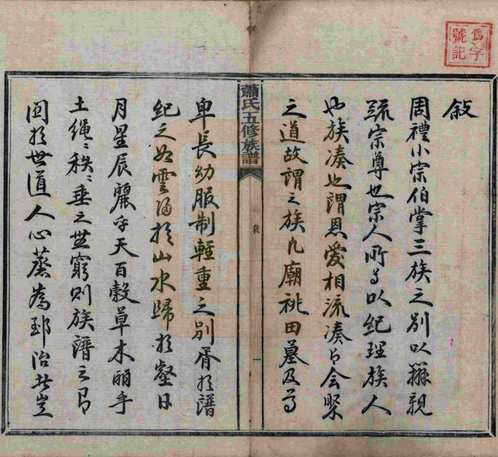 敘
周禮小宗伯掌三族之別以辨親
疏宗尊也宗人所⿱以紀理族人
也族湊也謂恩愛相流湊也會聚
之道故謂之族凡廟祧田墓及
蕭氏五修族譜
敘
一
卑長幼服制輕重之別胥於譜
紀之如雲歸於山水歸於壑日
月星辰麗乎天百穀草木丽乎
土繩繩秩秩垂之無窮則族譜之
世道人心蒸為郅治
為字
號記